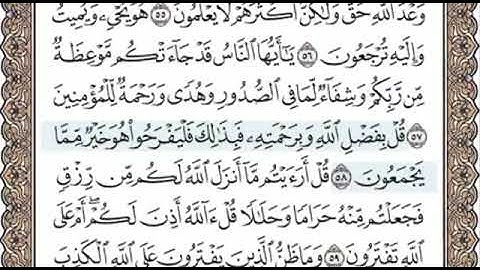 وَعْدَ ٱللَّهِ حَقٌّ وَلَٰكِنَّ أَكْثَرَهُمْ لَا يَعْلَمُونَ ٥٥ هُوَ يُحْيِۦ وَيُمِيتُ
وَإِلَيْهِ تُرْجَعُونَ ٥٦ يَٰٓأَيُّهَا ٱلنَّاسُ قَدْ جَآءَتْكُم مَّوْعِظَةٌ
مِّن رَّبِّكُمْ وَشِفَآءٌ لِّمَا فِى ٱلصُّدُورِ وَهُدًى وَرَحْمَةٌ لِّلْمُؤْمِنِينَ
٥٧ قُلْ بِفَضْلِ ٱللَّهِ وَبِرَحْمَتِهِۦ فَبِذَٰلِكَ فَلْيَفْرَحُوا۟ هُوَ خَيْرٌ مِّمَّا
يَجْمَعُونَ ٥٨ قُلْ أَرَءَيْتُم مَّآ أَنزَلَ ٱللَّهُ لَكُم مِّن رِّزْقٍ
فَجَعَلْتُم مِّنْهُ حَرَامًا وَحَلَٰلًا قُلْ ءَآللَّهُ أَذِنَ لَكُمْ ۖ أَمْ عَلَى
ٱللَّهِ تَفْتَرُونَ ٥٩ وَمَا ظَنُّ ٱلَّذِينَ يَفْتَرُونَ عَلَى ٱللَّهِ ٱلْكَذِبَ